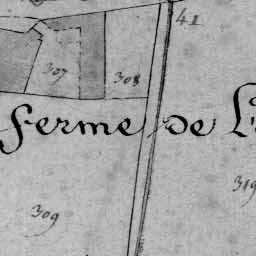 41
307
308
Ferme de
309
319